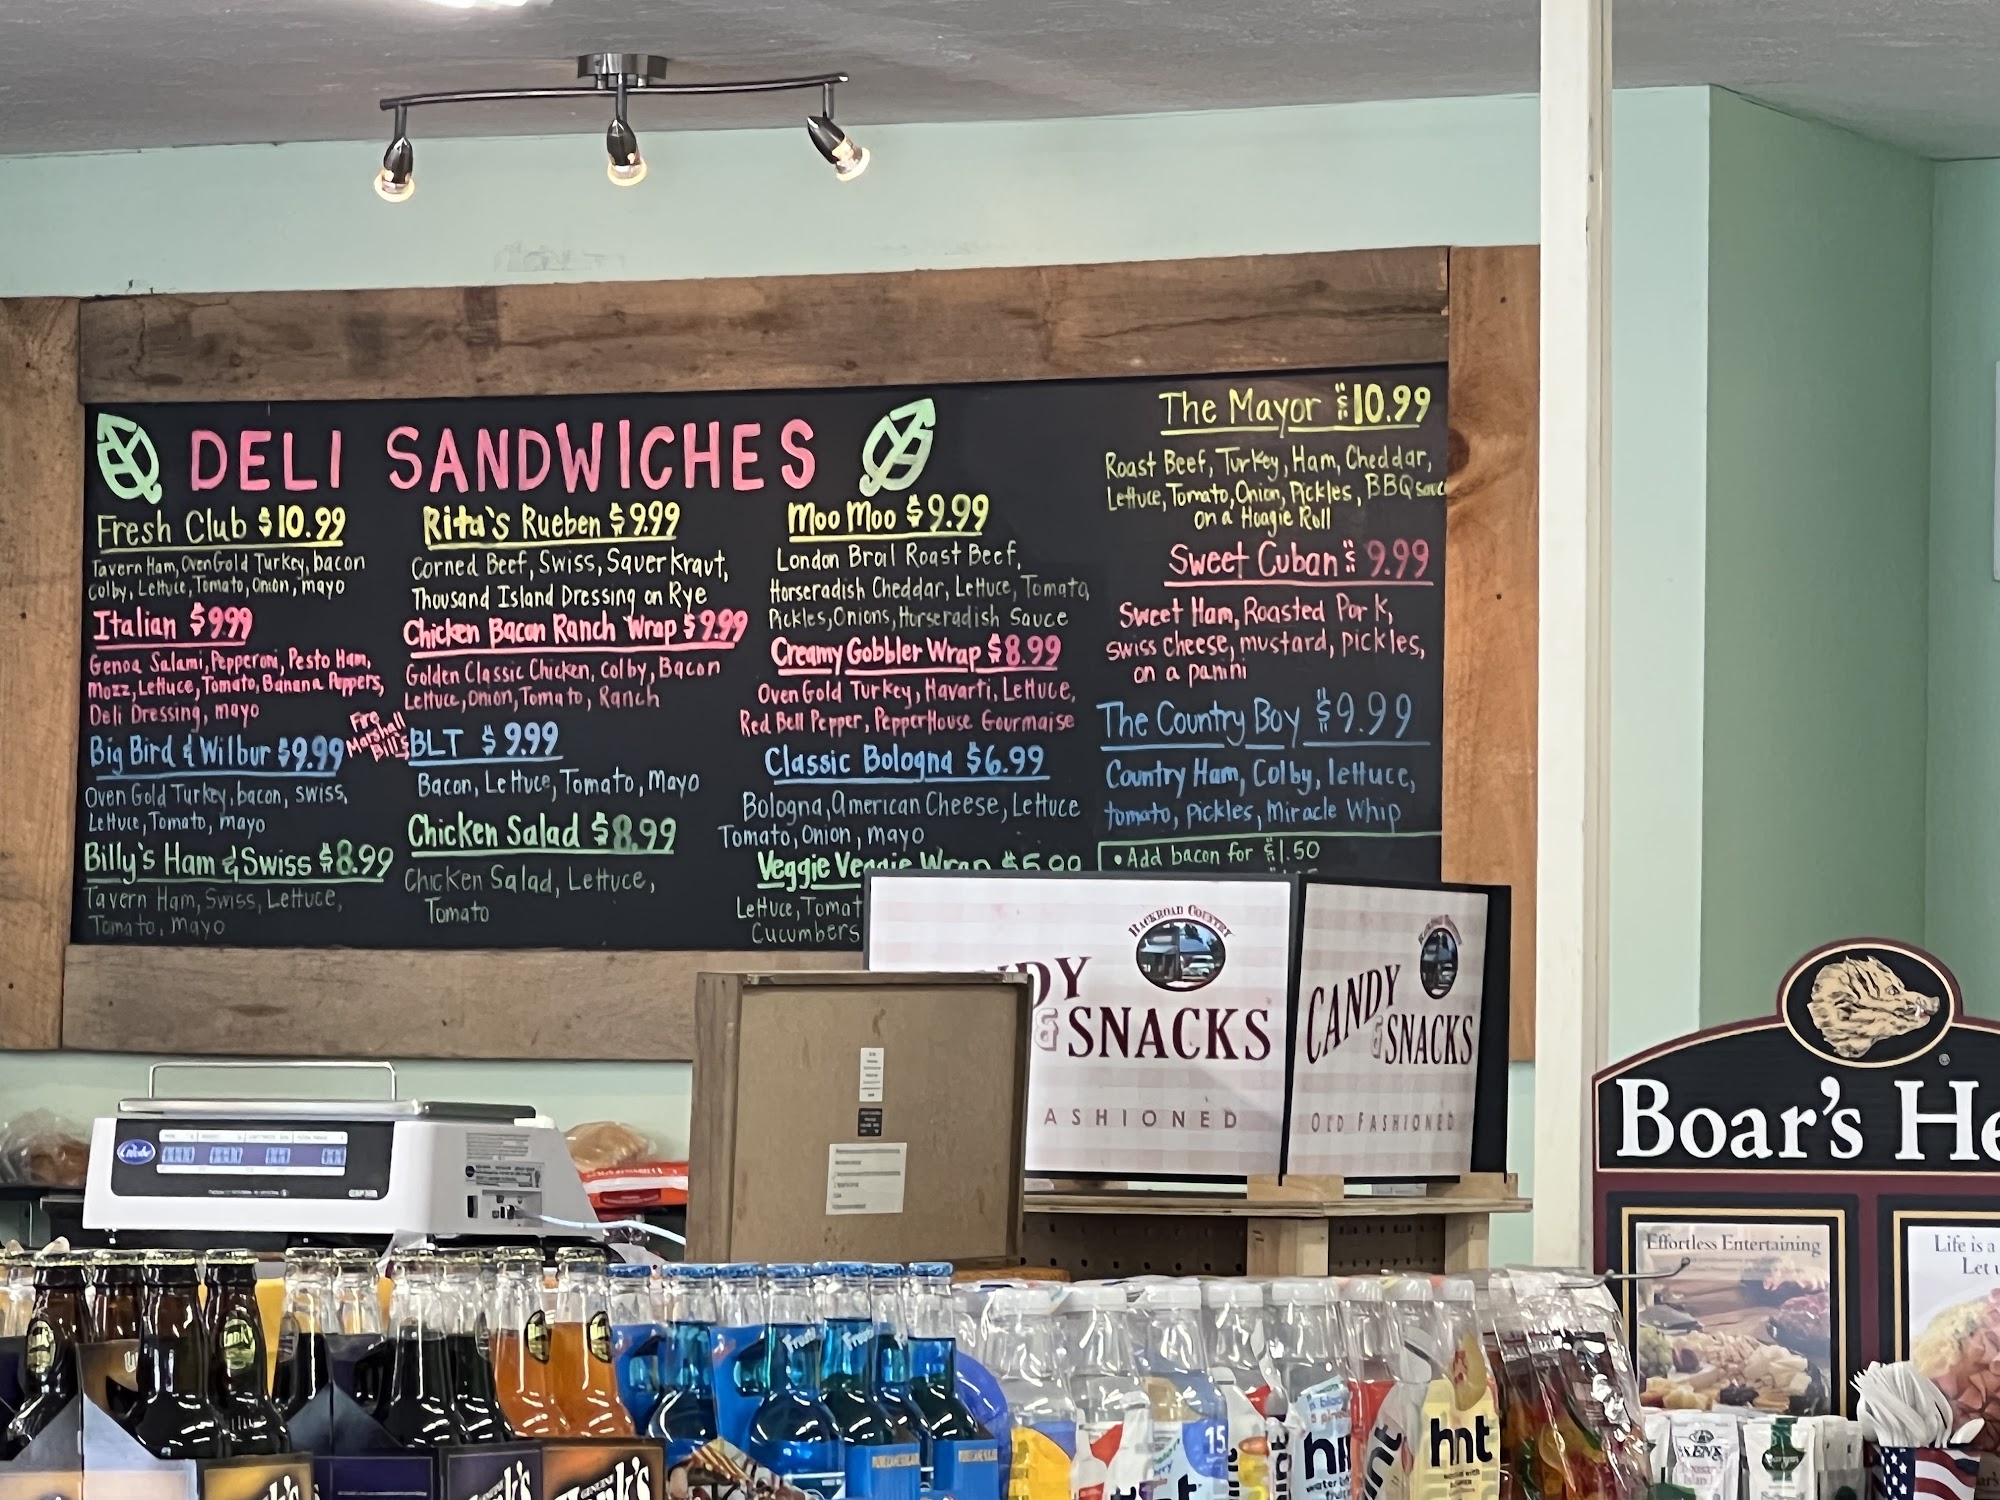 DELI SANDWICHES
Fresh Club $10.99
Tavern Ham, OvenGold Turkey, bacon
Colby, Lettuce, Tomato, Onion, mayo
Italian $9.99
Genoa Salami, Pepperoni, Pesto Ham,
Mozz, Lettuce, Tomato, Banana Peppers,
Deli Dressing, mayo
Big Bird & Wilbur $9.99
Oven Gold Turkey, bacon, swiss,
Lettuce, Tomato, mayo
Billy's Ham & Swiss $8.99
Tavern Ham, Swiss, Lettuce,
Tomato, Mayo
Rita's Rueben $9.99
Corned Beef, Swiss, Sauerkraut,
Thousand Island Dressing on Rye
Chicken Bacon Ranch Wrap $9.99
Golden Classic Chicken, Colby, Bacon
Lettuce, Onion, Tomato, Ranch
Fire
Marshall
Bill's
BLT $9.99
Bacon, Lettuce, Tomato, Mayo
Chicken Salad $8.99
Chicken Salad, Lettuce,
Tomato
Moo Moo $9.99
London Broil Roast Beef,
Horseradish Cheddar, Lettuce, Tomato,
Pickles, Onions, Horseradish Sauce
Creamy Gobbler Wrap $8.99
OvenGold Turkey, Havarti, Lettuce,
Red Bell Pepper, PepperHouse Gourmaise
Classic Bologna $6.99
Bologna, American Cheese, Lettuce
Tomato, Onion, mayo
Veggie Veggie Wrap $5.99
Lettuce, Tomat
Cucumbers
The Mayor $10.99
Roast Beef, Turkey, Ham, Cheddar,
Lettuce, Tomato, Onion, Pickles, BBQ sauce
on a Hoagie Roll
Sweet Cuban $9.99
Sweet Ham, Roasted Pork,
Swiss Cheese, mustard, pickles,
on a panini
The Country Boy $9.99
Country Ham, Colby, lettuce,
tomato, pickles, Miracle Whip
• Add bacon for $1.50
BACKROAD COUNTRY
NDY
& SNACKS
ASHIONED
CANDY
& SNACKS
OLD FASHIONED
Boar's He
Effortless Entertaining
Life is a
Let u
Globe
hint
15
hnt
KEN'S